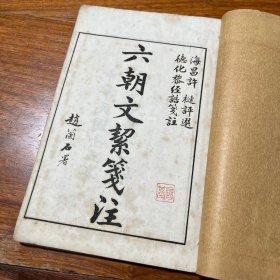 海昌許槤評選
德化黎經誥箋註
六朝文絜箋注
趙蘭石署